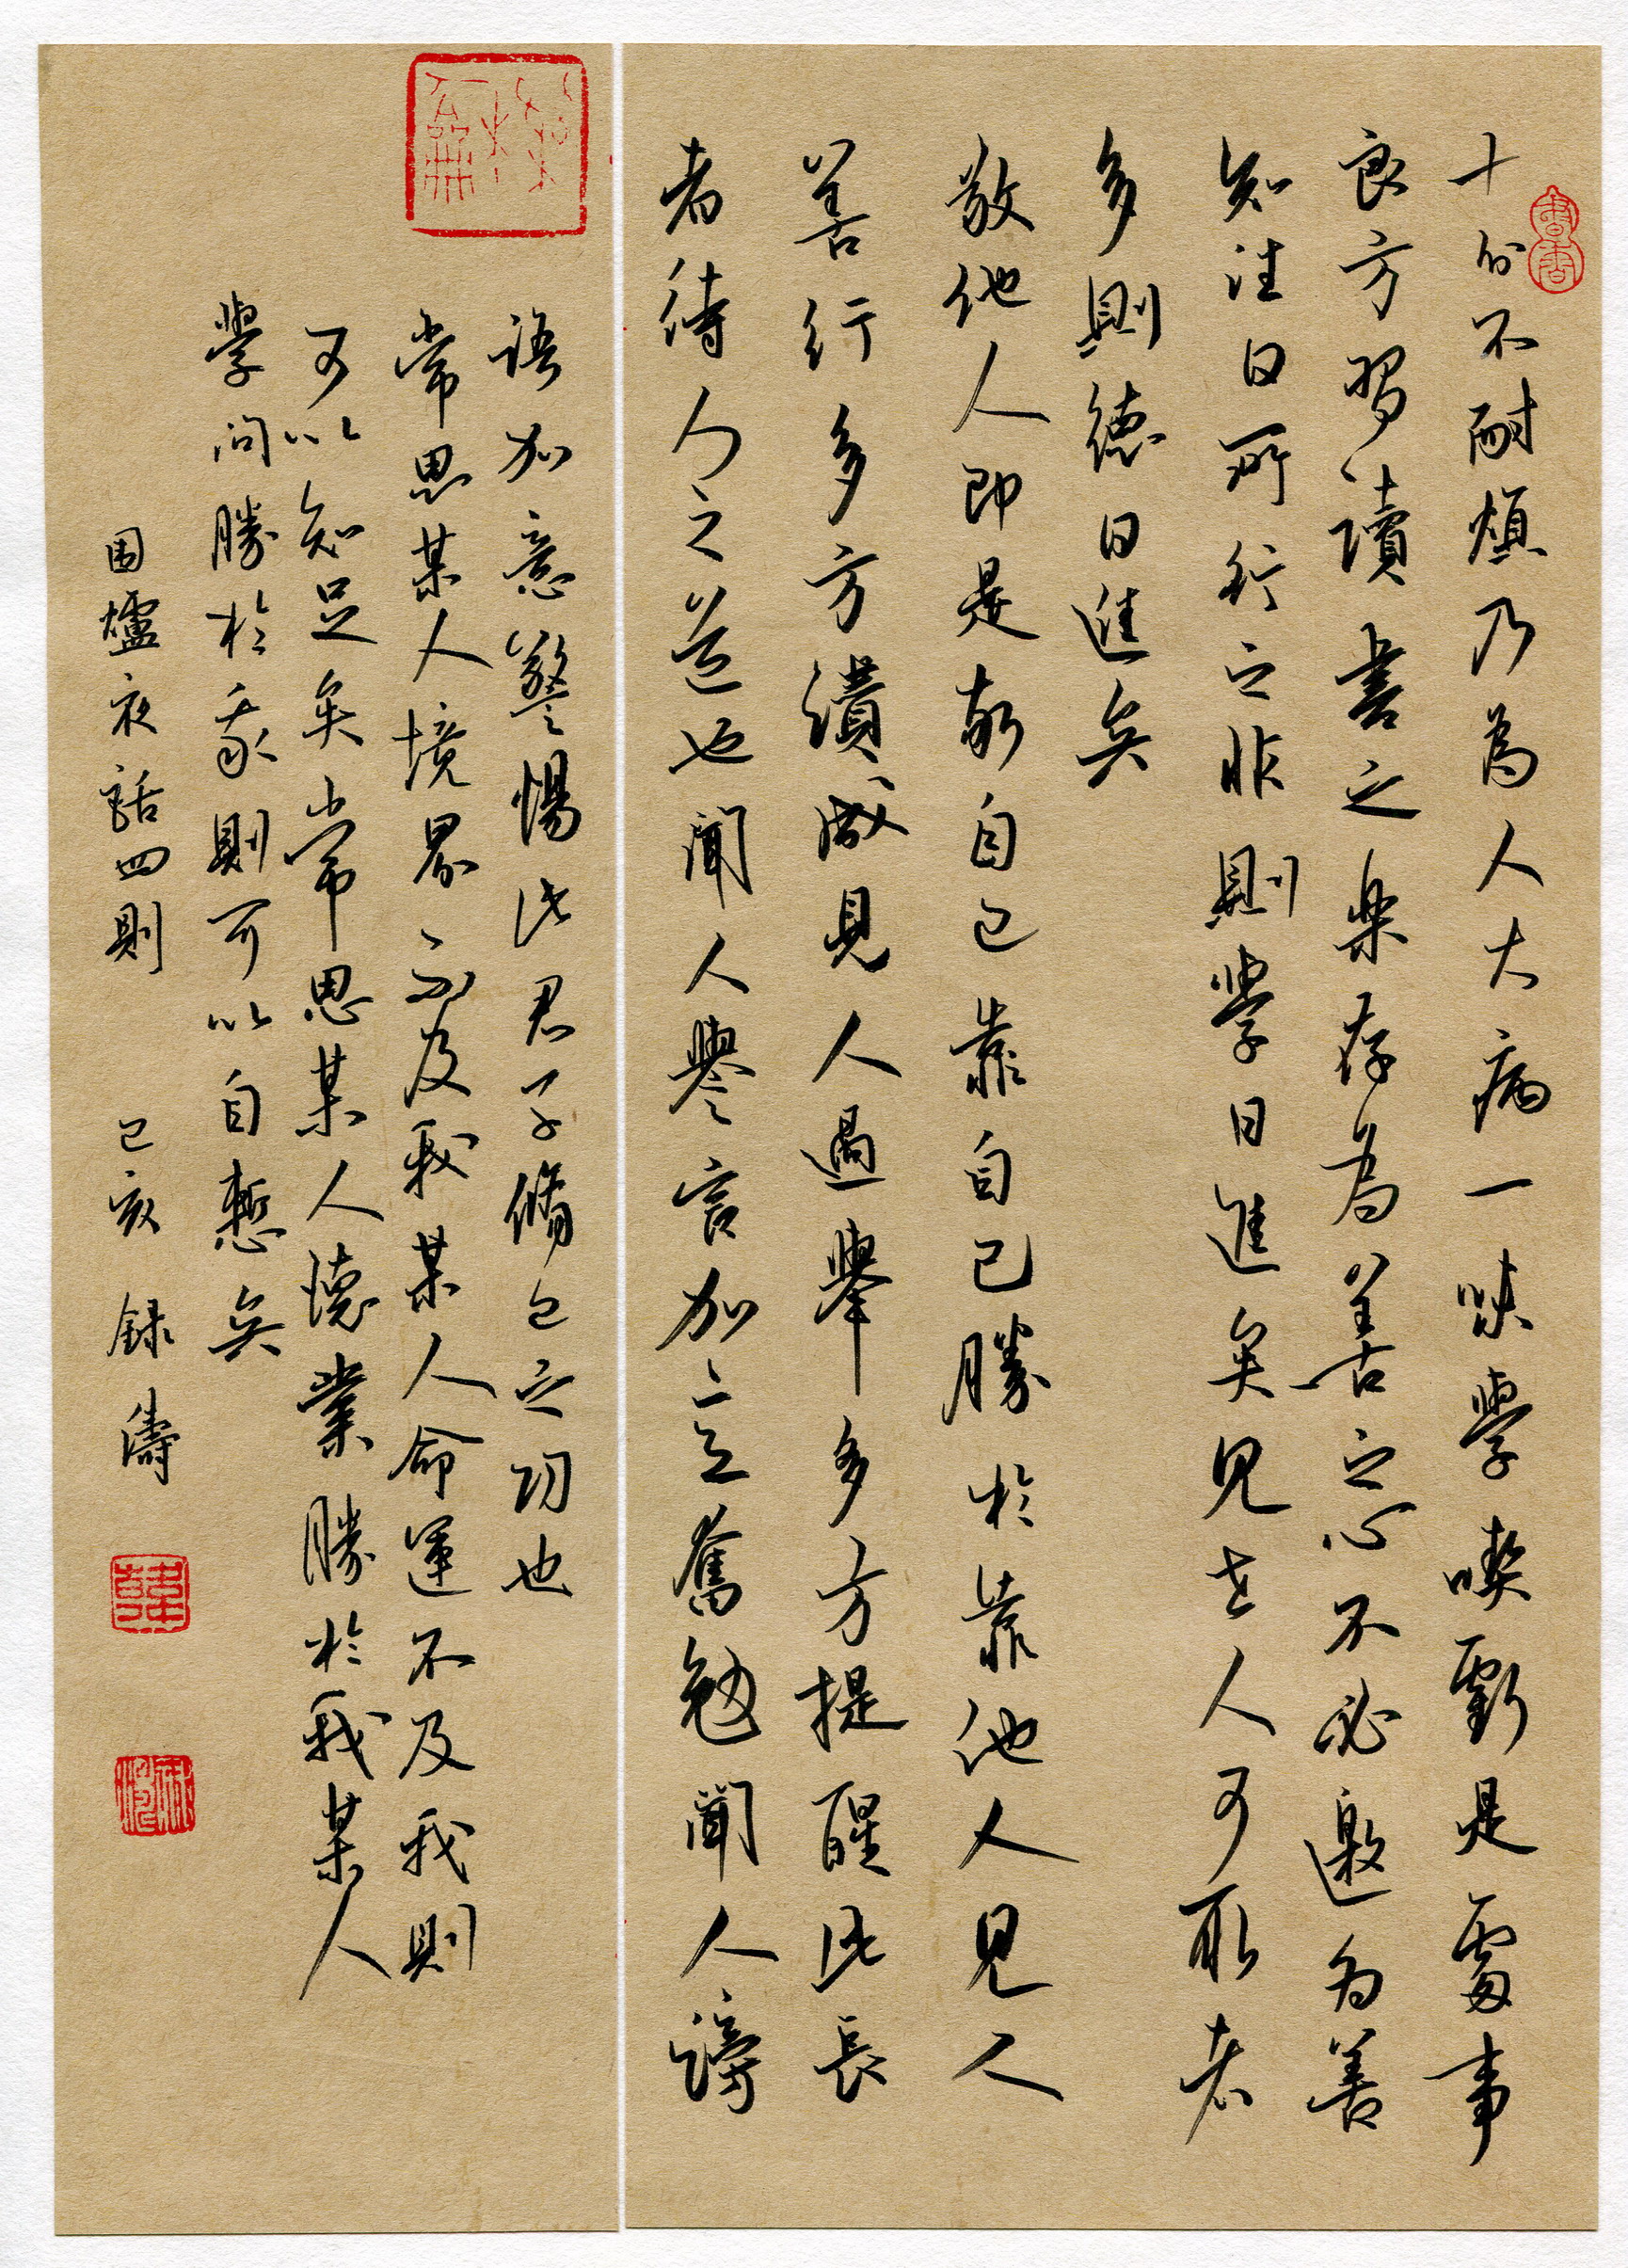 書香
十分不耐煩乃為人大病一味學喫虧是處事
良方習讀書之樂存為善之心不必邀為善
知往日所行之非則學日進矣見世人可取者
多則德日進矣
敬他人即是敬自己靠自己勝於靠他人見人
善行多方讚成見人過舉多方提醒此長
者待人之道也聞人譽言加意奮勉聞人謗
語加意警惕此君子脩己之功也
常思某人境界不及我某人命運不及我則
可以知足矣常思某人德業勝於我某人
學問勝於我則可以自慙矣
围爐夜話四則 己亥 録濤
韓